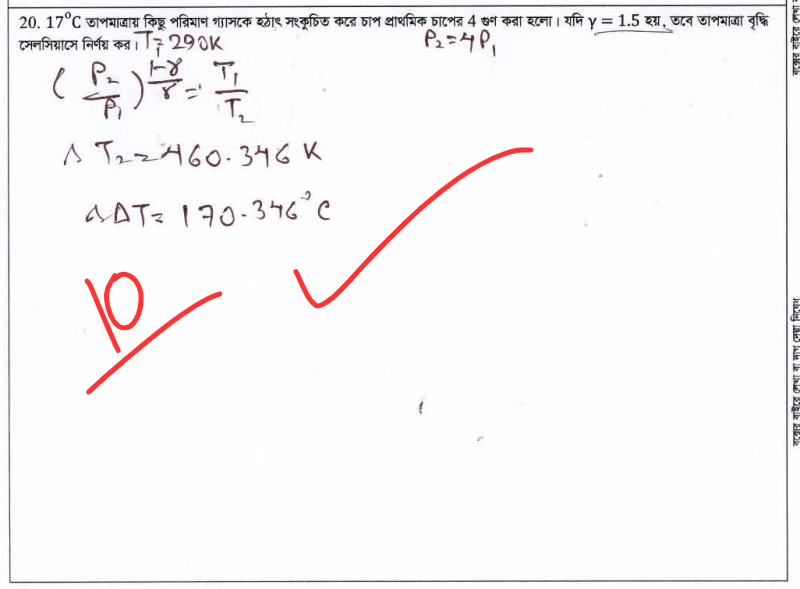 20. 17°C তাপমাত্রায় কিছু পরিমাণ গ্যাসকে হঠাৎ সংকুচিত করে চাপ প্রাথমিক চাপের 4 গুণ করা হলো। যদি γ = 1.5 হয়, তবে তাপমাত্রা বৃদ্ধি
সেলসিয়াসে নির্ণয় কর। T₁ = 290K P₂ = 4P₁
(P₂/P₁)^((1-γ)/γ) = T₁/T₂
∴ T₂ = 460.346 K
∴ ΔT = 170.346°C
10